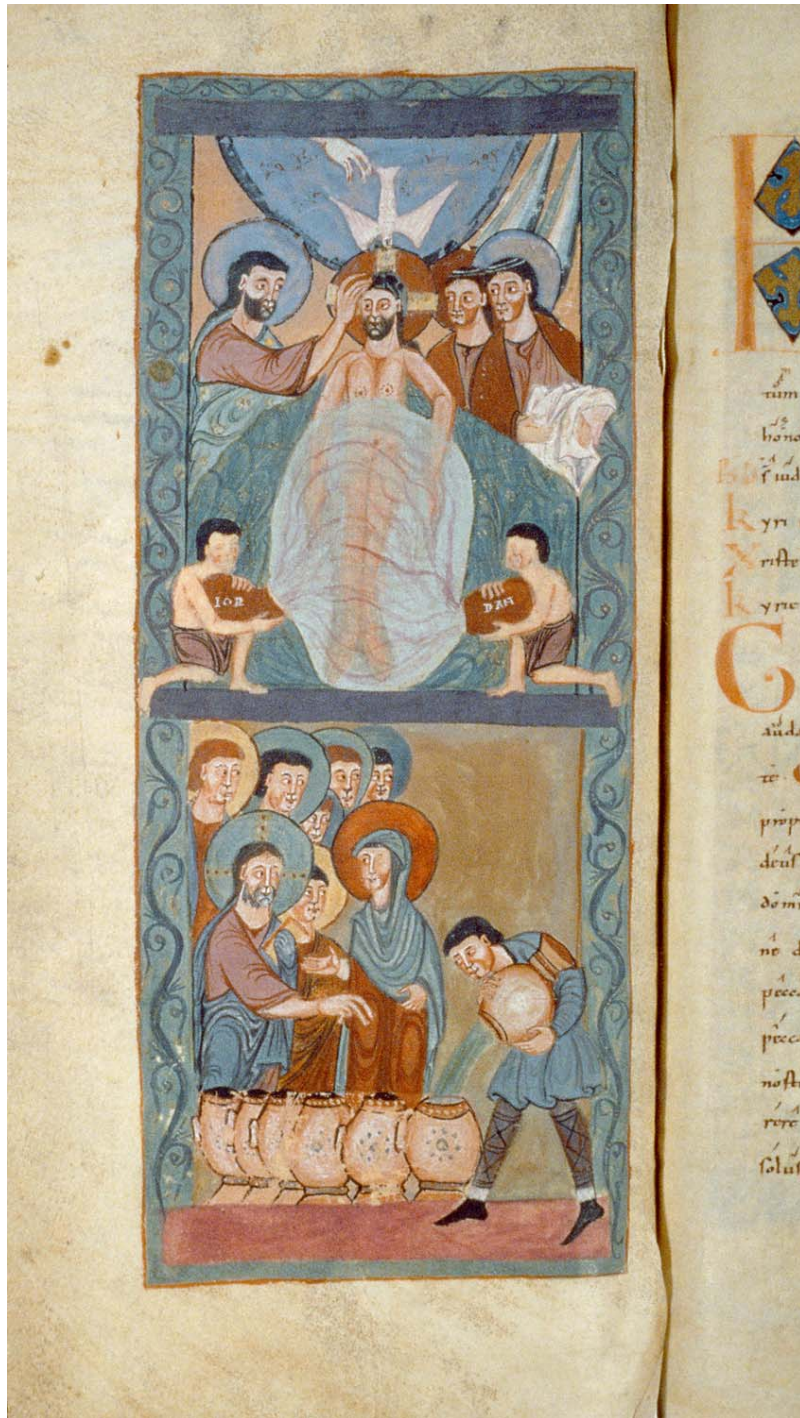 IOR
DAN
E
tum
hono
k yri
X riste
k yrie
G
auda
te
prop
deus
domi
ne d
pecca
pecca
nostr
solus